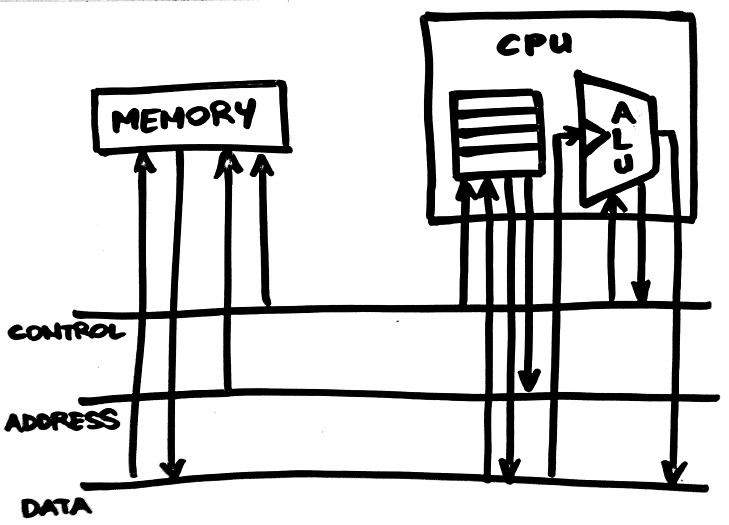 CPU
MEMORY
ALU
CONTROL
ADDRESS
DATA